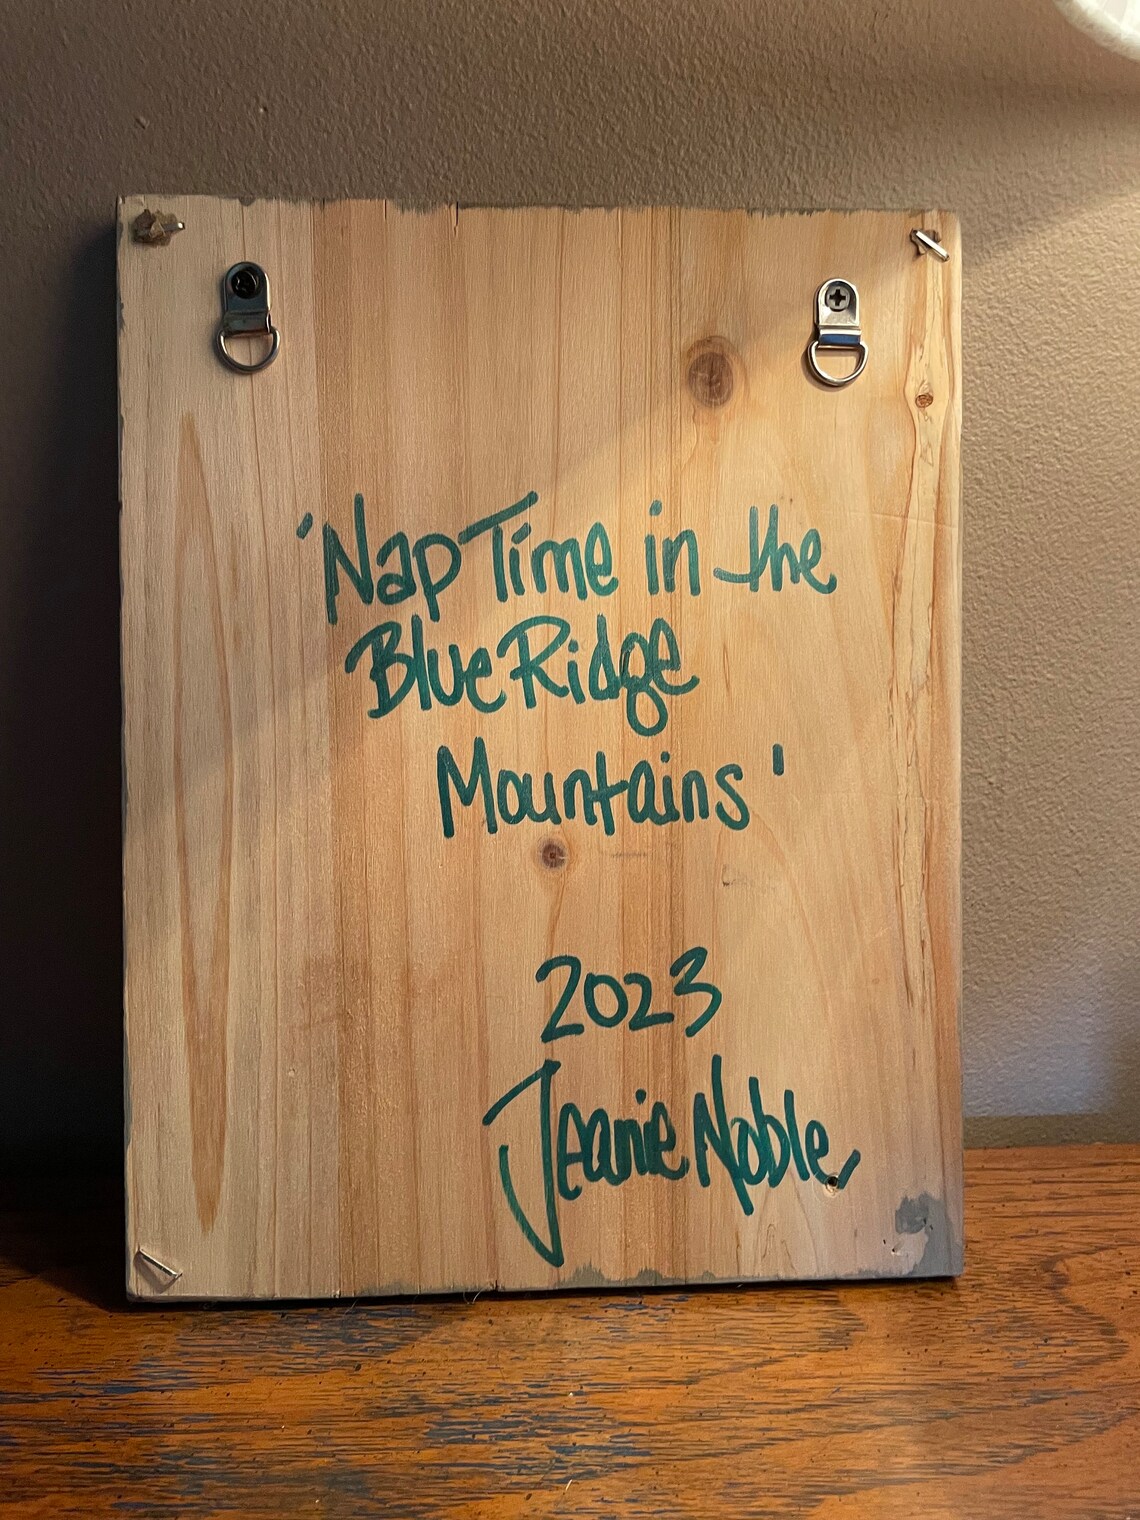 'Nap Time in the
Blue Ridge
Mountains'
2023
Jeanie Noble